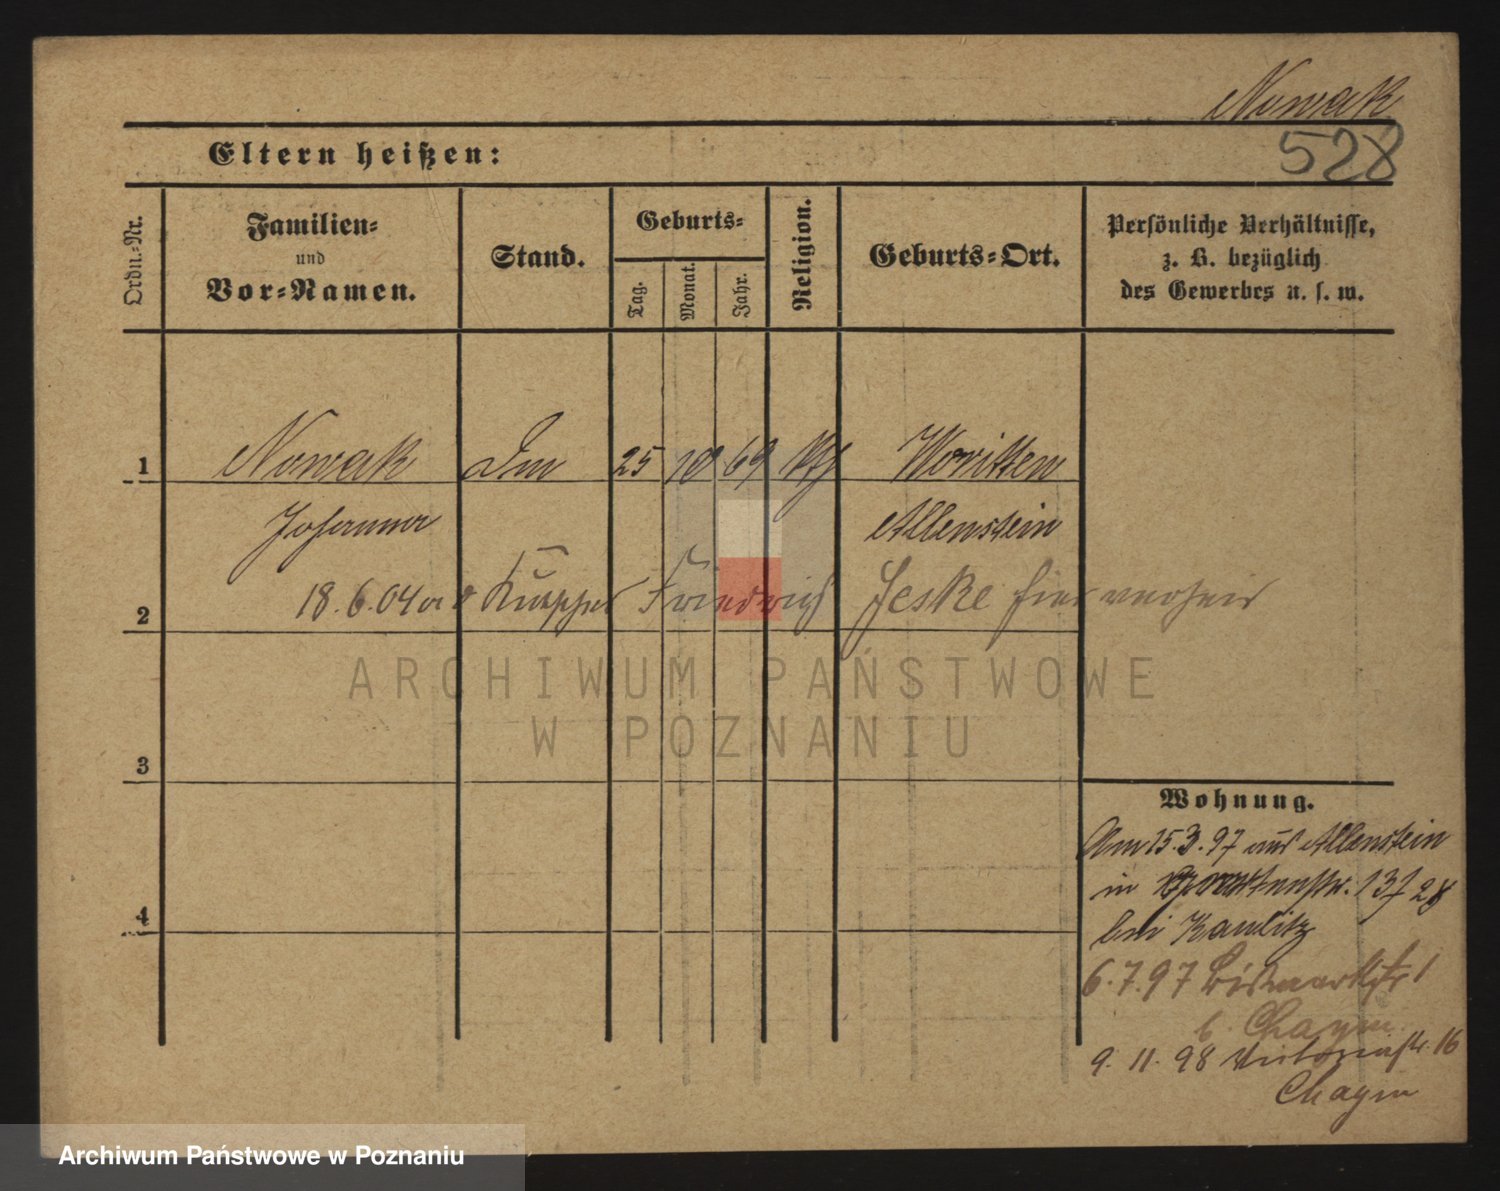 Nowak
528
Eltern heißen:
Ordn.-Nr.
Familien-
und
Vor-Namen.
Stand.
Geburts-
Tag.
Monat.
Jahr.
Religion.
Geburts-Ort.
Persönliche Verhältnisse,
z. B. bezüglich
des Gewerbes u. s. w.
1 Nowak 25 10 69 Woritten
Johanna Allenstein
2 18.6.04 Friedrich Jeske hier verheir
3
4
ARCHIWUM PAŃSTWOWE
W POZNANIU
Wohnung.
Am 15.3.97 aus Allenstein
in 13 f 28
bei Kaulitz
6.7.97 Bismarckstr 1
b. Chaym
9.11.98 Victoriastr. 16
Chaym
Archiwum Państwowe w Poznaniu